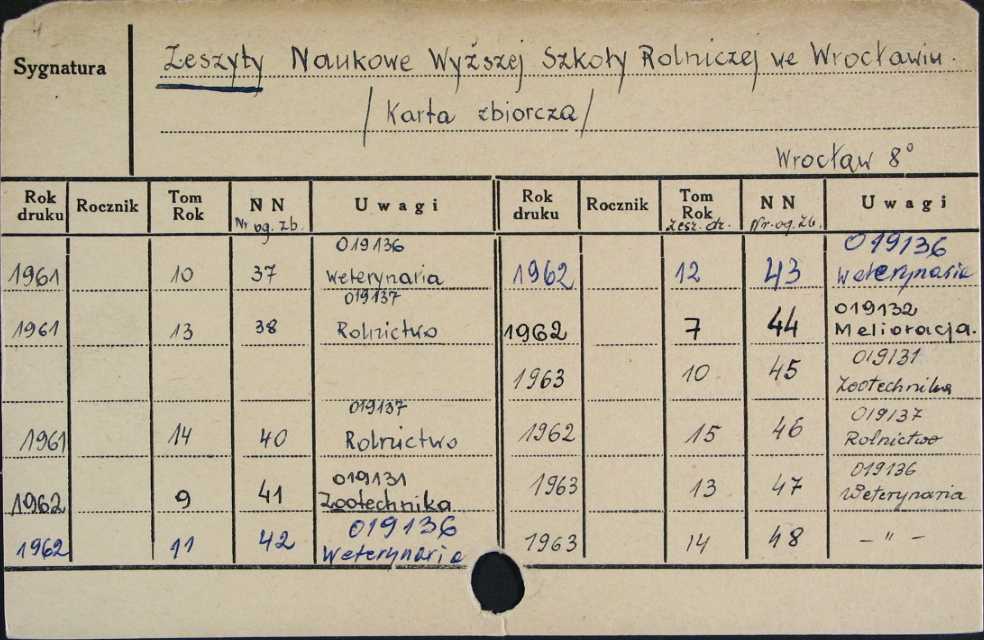 Sygnatura
Zeszyty Naukowe Wyższej Szkoły Rolniczej we Wrocławiu.
/Karta zbiorcza/
Wrocław 8°
Rok druku Rocznik Tom Rok NN Nr og. zb. Uwagi Rok druku Rocznik Tom Rok zesz. dz. NN Nr. og. zb. Uwagi
1961 10 37 019136 Weterynaria 1962 12 43 019136 Weterynaria
1961 13 38 019137 Rolnictwo 1962 7 44 019132 Melioracja.
1963 10 45 019131 Zootechnika
1961 14 40 019137 Rolnictwo 1962 15 46 019137 Rolnictwo
1962 9 41 019131 Zootechnika 1963 13 47 019136 Weterynaria
1962 11 42 019136 Weterynaria 1963 14 48 – " –